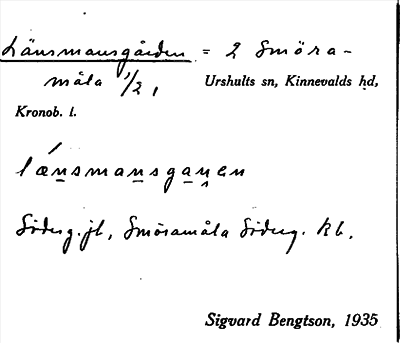 Länsmansgården = 2 Smöra-
måla 1/2, Urshults sn, Kinnevalds hd,
Kronob. l.
lænsmansgaṇen
Söderg. jb, Smöramåla Söderg. kb.
Sigvard Bengtson, 1935